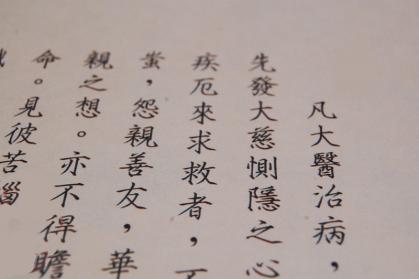 凡大醫治病，
先發大慈惻隱之心
疾厄來求救者，不
蚩，怨親善友，華
親之想。亦不得瞻
命。見彼苦惱